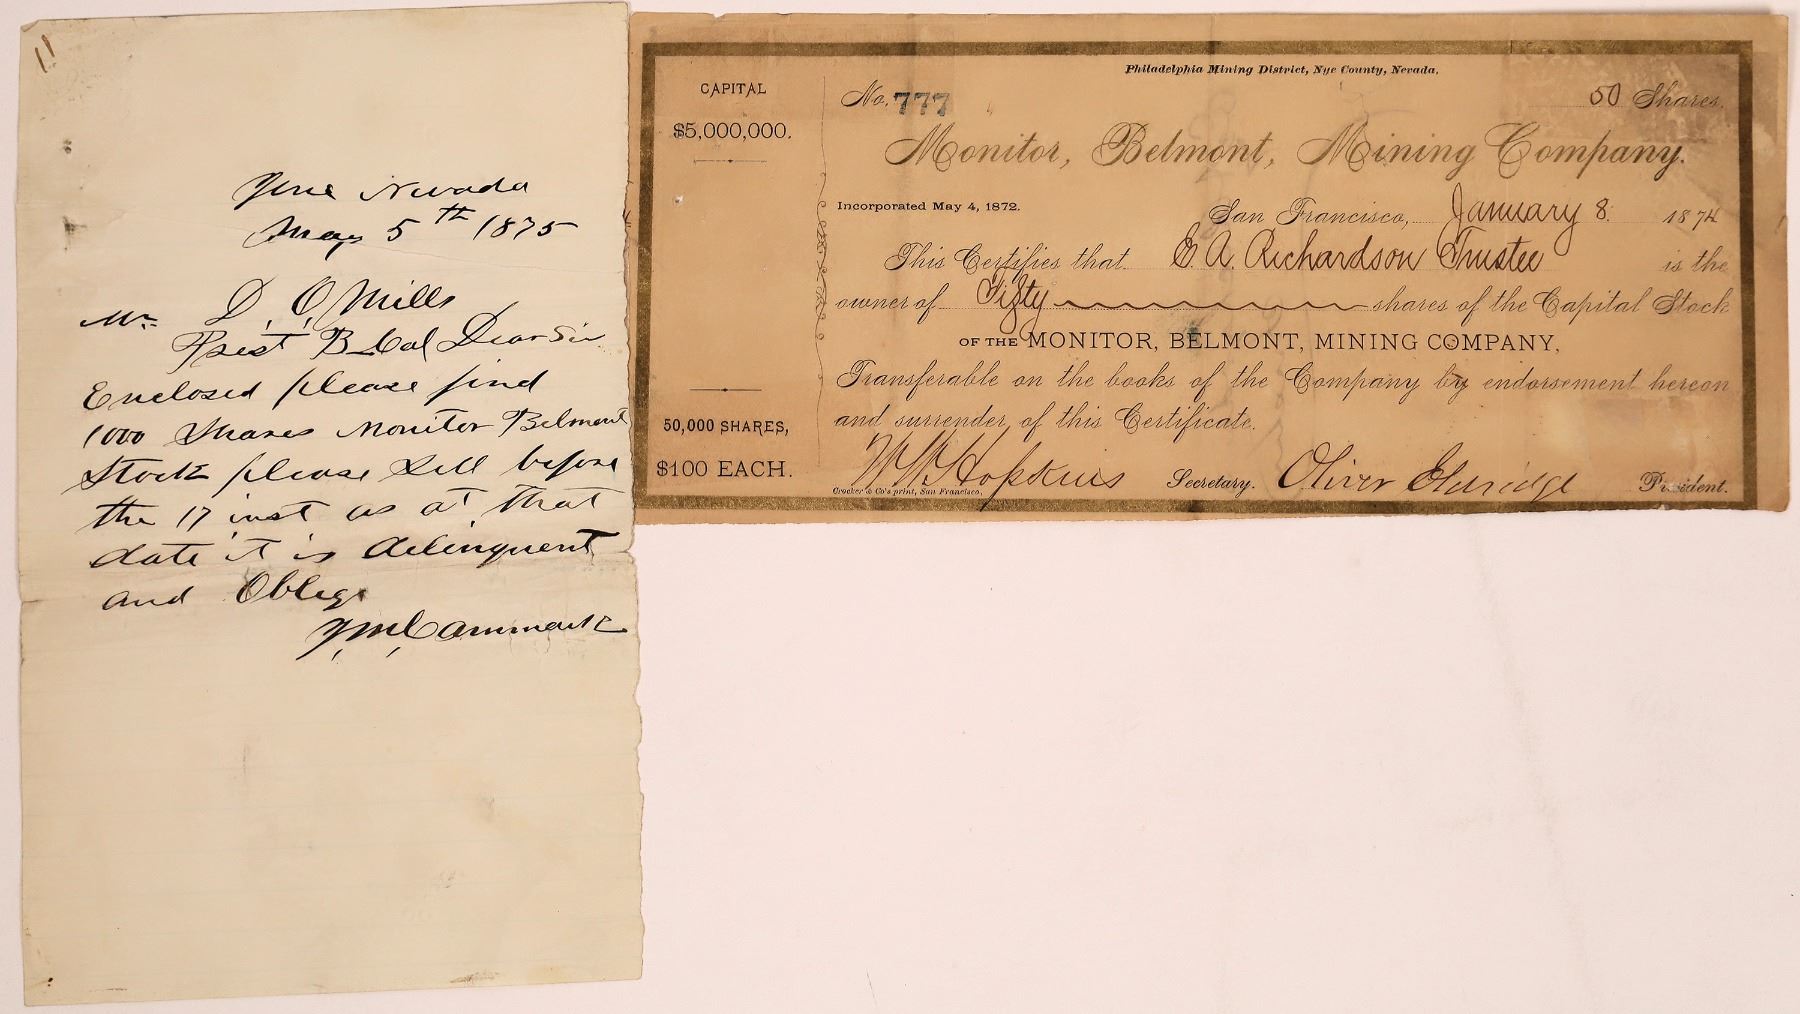 Nevada
May 5th 1875
Mr. D. O. Mills
Prest B Cal Dear Sir
Enclosed please find
1000 Shares Monitor Belmont
Stock please Sell before
the 17 inst as at that
date it is delinquent
and Oblige
Cammack
Philadelphia Mining District, Nye County, Nevada.
CAPITAL
$5,000,000.
50,000 SHARES,
$100 EACH.
No. 777
50 Shares.
Monitor, Belmont, Mining Company.
Incorporated May 4, 1872.
San Francisco, January 8. 1874
This Certifies that E. A. Richardson Trustee is the
owner of Fifty shares of the Capital Stock
OF THE MONITOR, BELMONT, MINING COMPANY,
Transferable on the books of the Company by endorsement hereon
and surrender of this Certificate.
W W Hopkins Secretary. Oliver Eldridge President.
Crocker & Co's print, San Francisco.